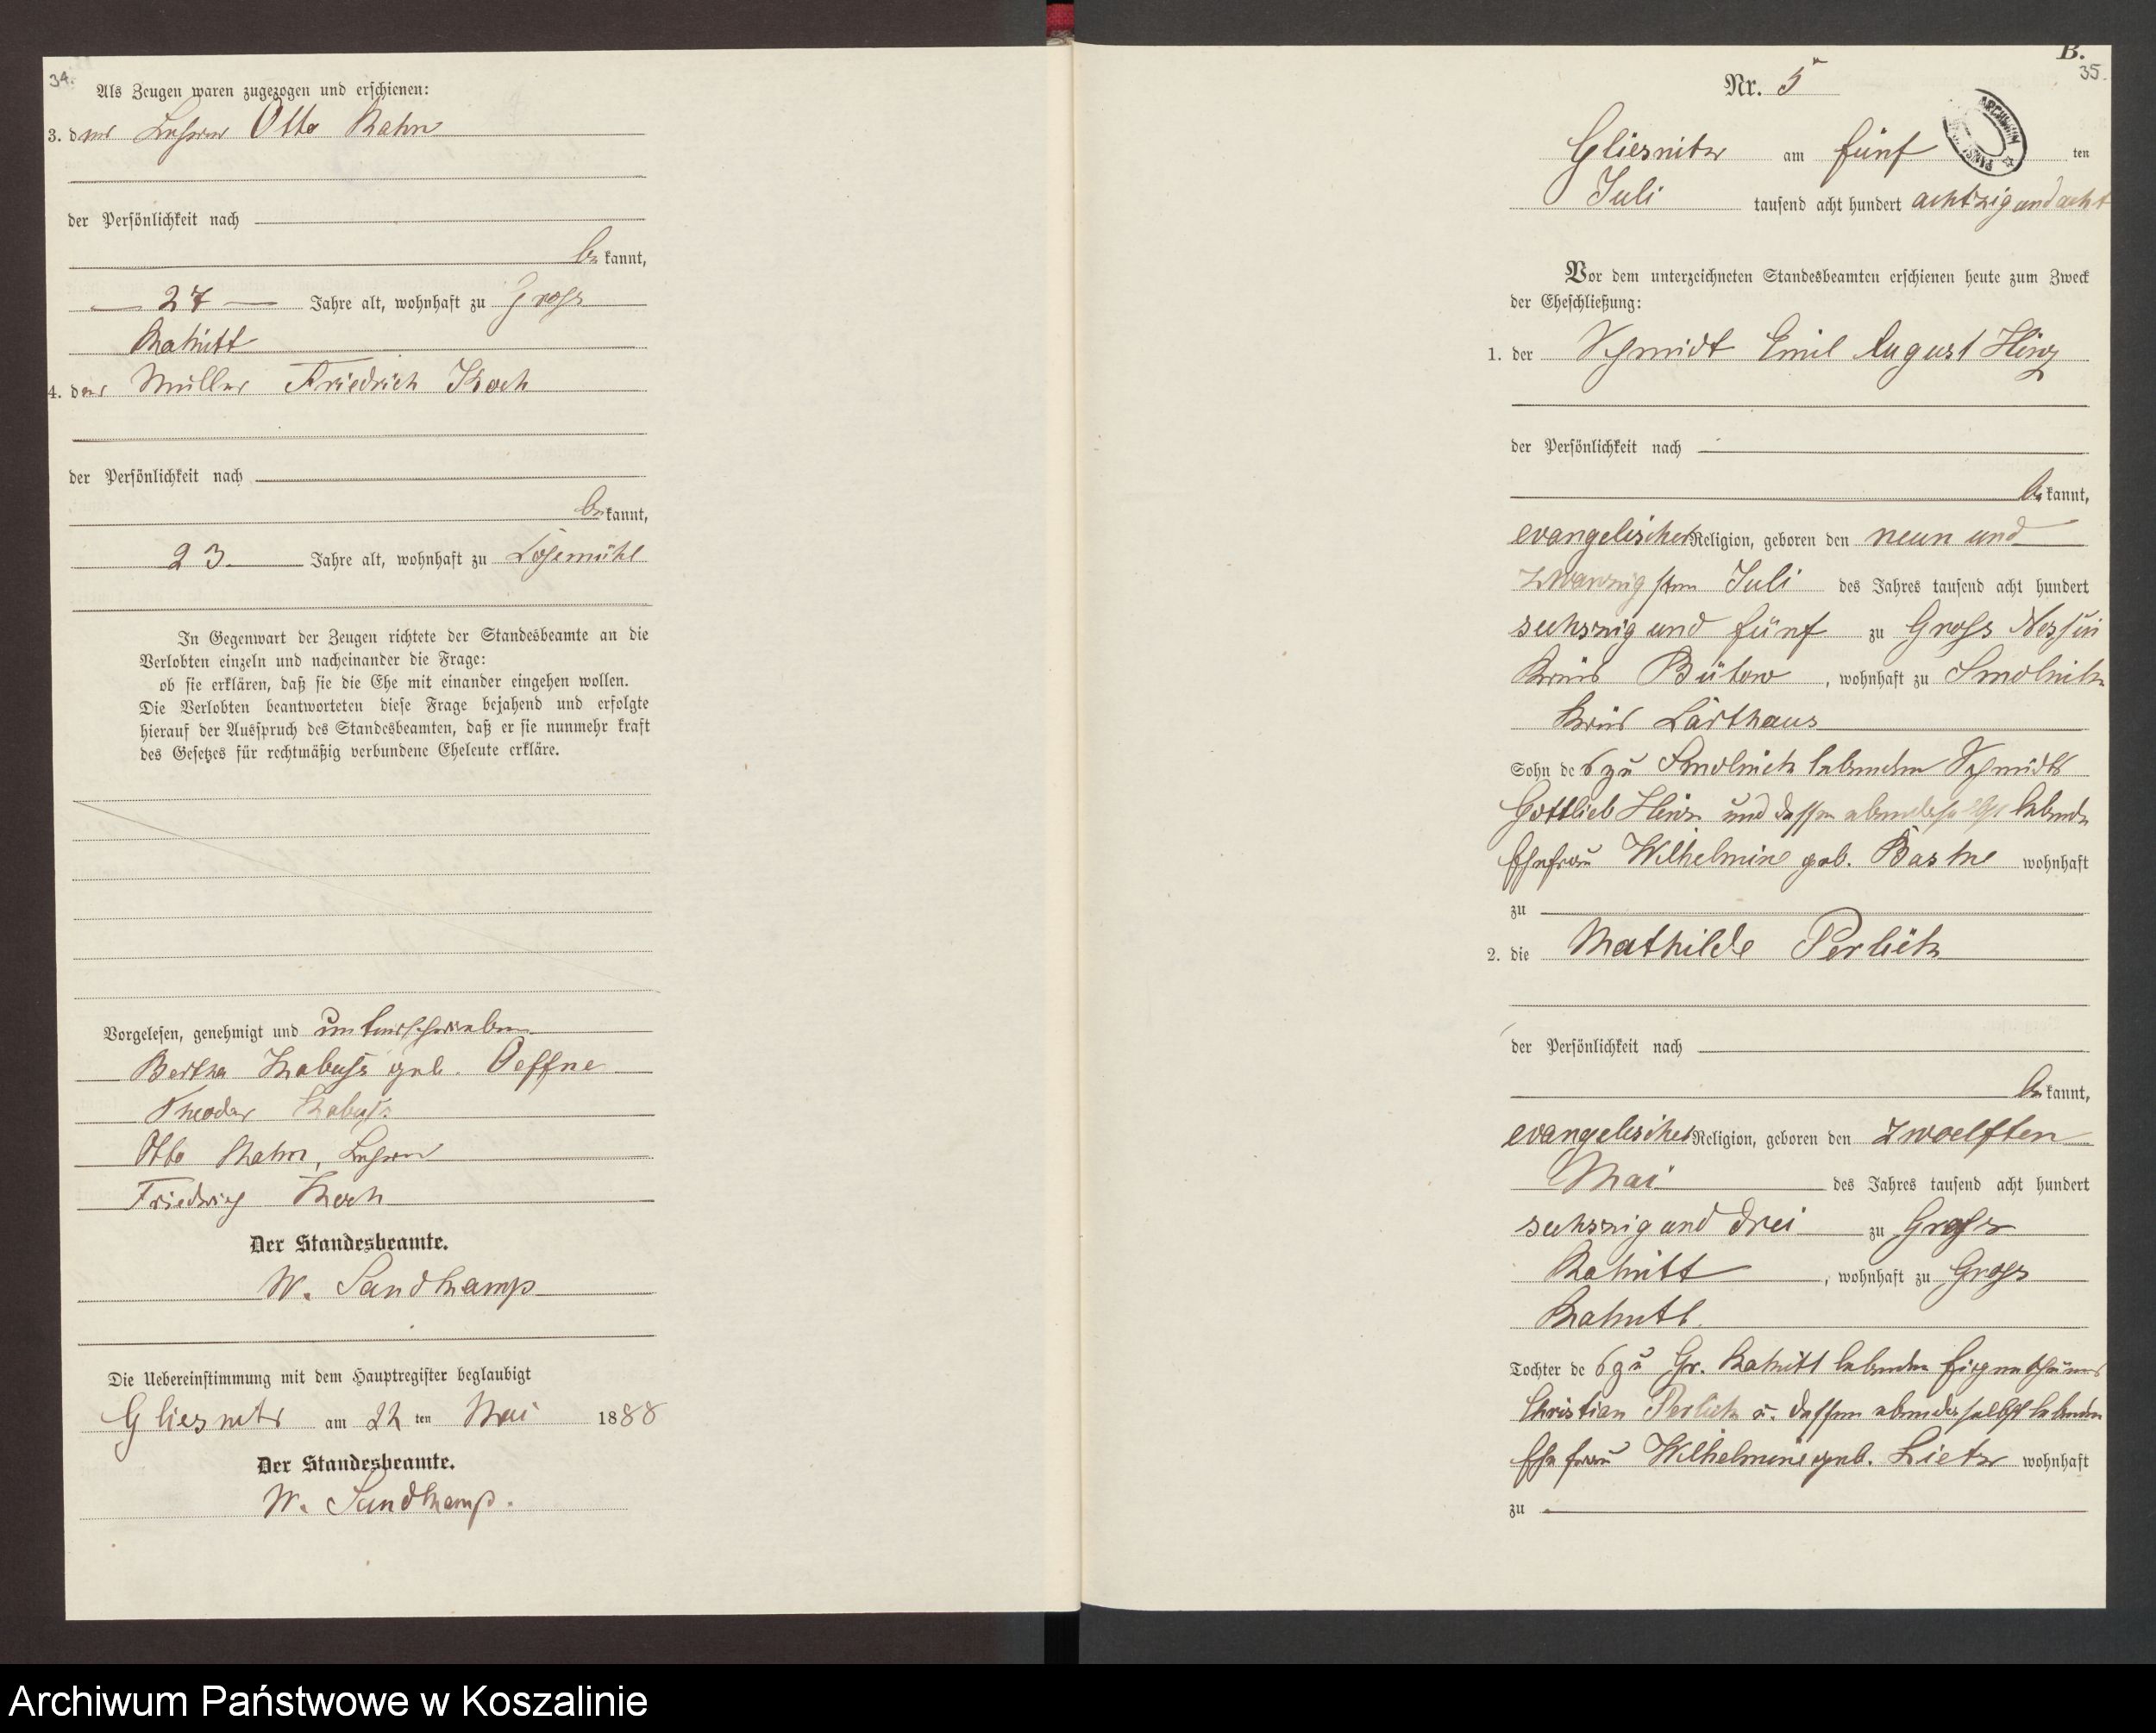 34.
Als Zeugen waren zugezogen und erschienen:
3. der Lehrer Otto Rahn
der Persönlichkeit nach
bekannt,
27 Jahre alt, wohnhaft zu Gross
Rakitt
4. der Müller Friedrich Koch
der Persönlichkeit nach
bekannt,
23 Jahre alt, wohnhaft zu
In Gegenwart der Zeugen richtete der Standesbeamte an die
Verlobten einzeln und nacheinander die Frage:
ob sie erklären, daß sie die Ehe mit einander eingehen wollen.
Die Verlobten beantworteten diese Frage bejahend und erfolgte
hierauf der Ausspruch des Standesbeamten, daß er sie nunmehr kraft
des Gesetzes für rechtmäßig verbundene Eheleute erkläre.
Vorgelesen, genehmigt und unterschrieben
Bertha geb. Oeffne
Theodor
Otto Rahn, Lehrer
Friedrich Koch
Der Standesbeamte.
W. Sandkamp
Die Uebereinstimmung mit dem Hauptregister beglaubigt
Gliesnitz am 22 ten Mai 1888
Der Standesbeamte.
W. Sandkamp.
B.
35.
Nr. 5
Gliesnitz am fünf ten
Juli tausend acht hundert achtzig und acht
Vor dem unterzeichneten Standesbeamten erschienen heute zum Zweck
der Eheschließung:
1. der Schmidt Emil August Hinz
der Persönlichkeit nach
bekannt,
evangelischer Religion, geboren den neun und
zwanzigsten Juli des Jahres tausend acht hundert
sechszig und fünf zu Gross
Kreis Bütow, wohnhaft zu Smolnitz
Kreis Carthaus
Sohn des zu Smolnitz lebenden Schmidts
Gottlieb Hinz und dessen ebendaselbst lebende
Ehefrau Wilhelmine geb. wohnhaft
zu
2. die Mathilde Perlick
der Persönlichkeit nach
bekannt,
evangelischer Religion, geboren den zwoelften
Mai des Jahres tausend acht hundert
sechszig und drei zu Gross
Rakitt, wohnhaft zu Gross
Rakitt.
Tochter des zu Gr. Rakitt lebenden Eigenthümers
Christian Perlick u. dessen ebendaselbst lebenden
Ehefrau Wilhelmine geb. Lietz wohnhaft
zu
Archiwum Państwowe w Koszalinie